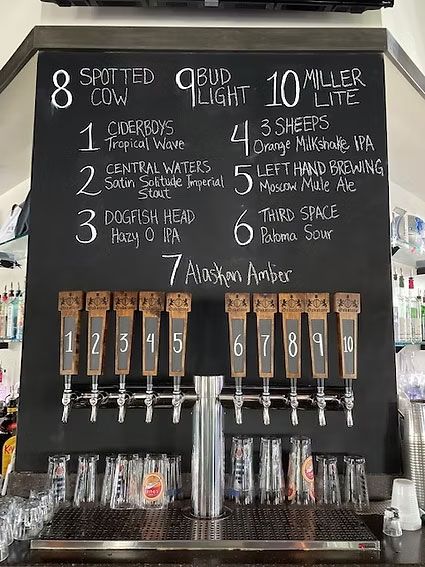 8 SPOTTED COW
9 BUD LIGHT
10 MILLER LITE
1 CIDERBOYS
Tropical Wave
4 3 SHEEPS
Orange Milkshake IPA
2 CENTRAL WATERS
Satin Solitude Imperial
Stout
5 LEFT HAND BREWING
Moscow Mule Ale
3 DOGFISH HEAD
Hazy O IPA
6 THIRD SPACE
Paloma Sour
7 Alaskan Amber
1 2 3 4 5 6 7 8 9 10